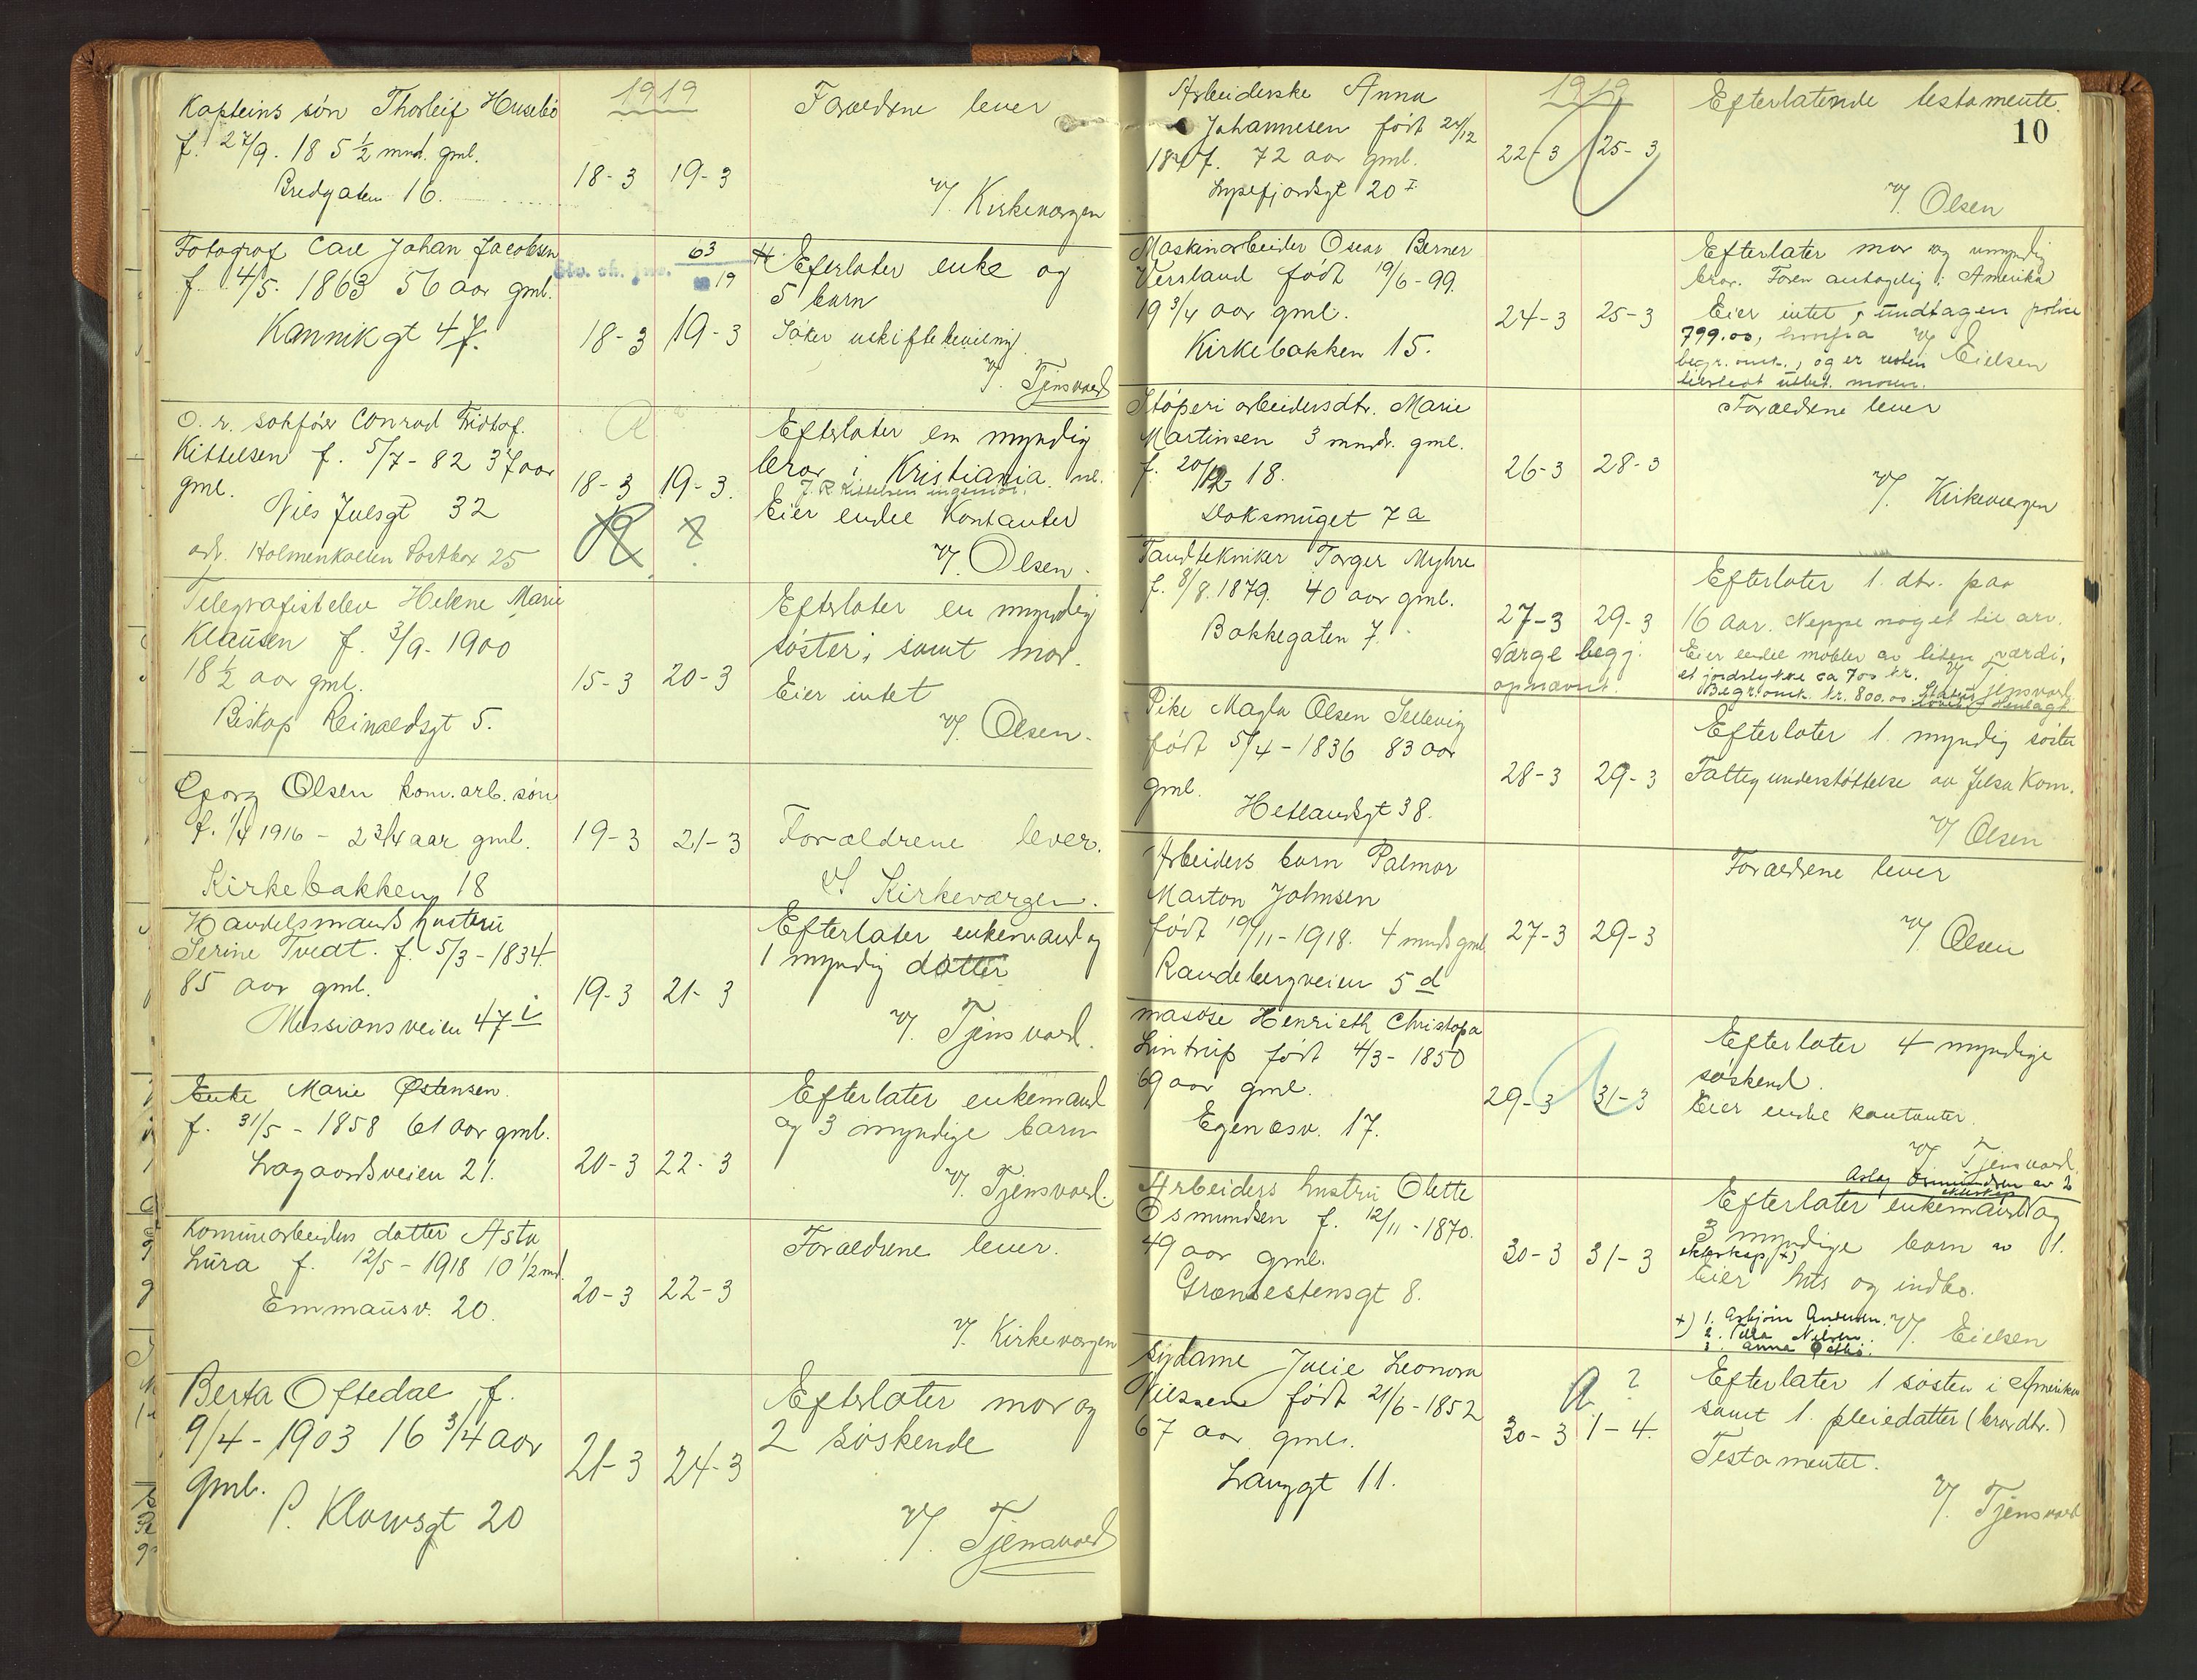 1919
Kapteins søn Thorleif Husebø
f. 27/9. 18 5 1/2 mnd. gml.
Bredgaten 16.
18-3 19-3
Forældrene lever
v/. Kirkeværgen
Fotograf Carl Johan Jacobsen
f. 4/5. 1863 56 aar gml.
Kannikgt 47.
63
19
18-3 19-3
Efterlater enke og
5 barn
Søker uskiftebevilling
v/. Tjensvold
O. r. sakfører Conrad Fridtof.
Kittelsen f. 5/7-82 37 aar
gml.
Niels Juelsgt 32
adr. Holmenkollen Postbox 25
18-3 19-3.
Efterlater en myndig
bror i Kristiania. nl.
J. R. Kittelsen ingeniør.
Eier endel Kontanter
v/. Olsen.
Telegrafistelev Helene Marie
Klausen f. 3/9-1900
18 1/2 aar gml.
Biskop Reinaldsgt 5.
15-3 20-3
Efterlater en myndig
søster, samt mor.
Eier intet
v/. Olsen.
Georg Olsen kom. arb. søn
f. 1/4 1916 - 2 3/4 aar gml.
Kirkebakken 18
19-3 21-3
Forældrene lever.
v/ Kirkeværgen.
Handelsmands hustru
Serine Tvedt. f. 5/3-1834.
85 aar gml.
Missionsveien 47 i
19-3 21-3
Efterlater enkemand og
1 myndig datter
v/. Tjensvold.
Enke Marie Østensen.
f. 31/5-1858 61 aar gml.
Lagaardsveien 21.
20-3 22-3
Efterlater enkemand
og 3 myndige barn
v/. Tjensvold.
Komm arbeiders datter Asta
Lura f. 12/5-1918 10 1/2 md.
Emmausv. 20.
20-3 22-3
Forældrene lever.
v/. Kirkeværgen
Berta Oftedal f.
9/4-1903 16 3/4 aar
gml.
P. Klowsgt 20
21-3 24-3
Efterlater mor og
2 søskende
v/. Tjensvold
1919
10
Arbeiderske Anna
Johannesen født 24/12
1847. 72 aar gml.
Lysefjordsgt 20 I
22-3 25-3
Efterlatende testamente.
v/. Olsen
Maskinarbeider Oscar Berner
Versland født 19/6-99.
19 3/4 aar gml.
Kirkebakken 15.
24-3 25-3
Efterlater mor og umyndig
bror. Faren antagelig i Amerika
Eier intet, undtagen police
799.00, hvorfra v/ Eielsen
begr. omk., og er resten
utbet. moren.
Støperi arbeidersdtr. Marie
Martinsen 3 mndr. gml.
f. 20/12-18.
Doksmuget 7 a
26-3 28-3
Forældrene lever
v/. Kirkeværgen
Tandtekniker Torger Myhre
f. 8/8. 1879. 40 aar gml.
Bakkegaten 7.
27-3 29-3
Værge begj.
opnævnt.
Efterlater 1. dtr. paa
16 aar. Neppe noget til arv.
Eier endel møbler av liten værdi,
et jordstykke ca 700 kr. v/ Tjensvold
Begr. omk. kr. 800.00
Pike Magla Olsen Sellevig
født 5/4-1836 83 aar
gml.
Hetlandsgt 38.
28-3 29-3
Efterlater 1. myndig søster
Fattigunderstøttelse av Jelsa Kom.
v/ Olsen
Arbeiders barn Palmar
Marton Johnsen
født 19/11-1918. 4 mnds gml
Randebergveien 5 d
27-3 29-3
Forældrene lever
v/. Olsen
Masøse Henrieth Christofa
Lintrup født 4/3-1850
69 aar gml.
Egenæsv. 17.
29-3 31-3
Efterlater 4 myndige
søskend.
Eier endel kontanter.
v/ Tjensvold.
Arbeiders hustru Olette
Osmundsen f. 12/11-1870.
49 aar gml.
Grønsestensgt 8.
30-3 31-3
Aslag Osmundsen av 2
ekteskap
Efterlater enkemand og
3 myndige barn av 1.
ekteskap, +)
Eier hus og indbo.
+) 1. Asbjørn Andersen. v/. Eielsen
2. Nilsen.
3. Anna
Sydame Julie Leonora
Nielssen født 21/6-1852
67 aar gml.
Langgt 11.
?
30-3 1-4.
Efterlater 1 søster i Amerika
samt 1. pleiedatter (brordtr.)
Testamentet.
v/. Tjensvold